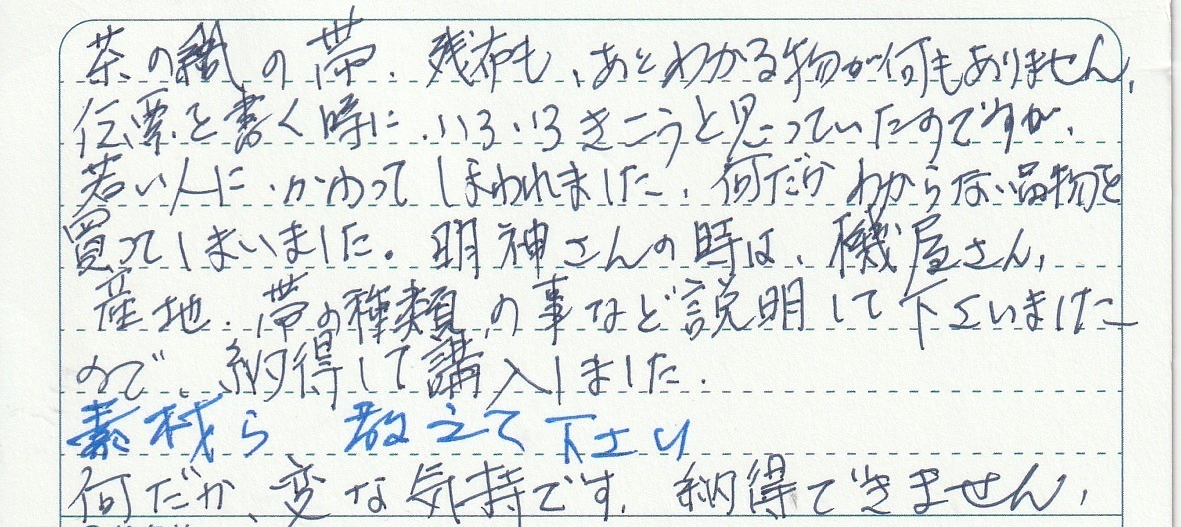 茶の織の帯、残布も、あとわかる物が何もありません、
伝票を書く時に、いろいろきこうと思っていたのですが、
若い人に、かわってしまわれました、何だかわからない品物を
買ってしまいました。明神さんの時は、機屋さん、
産地、帯の種類、の事など説明して下さいました
ので、納得して講入しました。
素材ら 教えて下さい
何だか、変な気持です、納得できません、